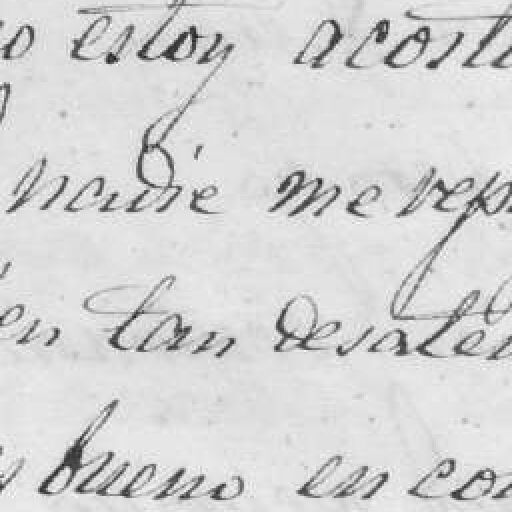 o estoy acost
nadie me rep
en tan desaten
bueno en con